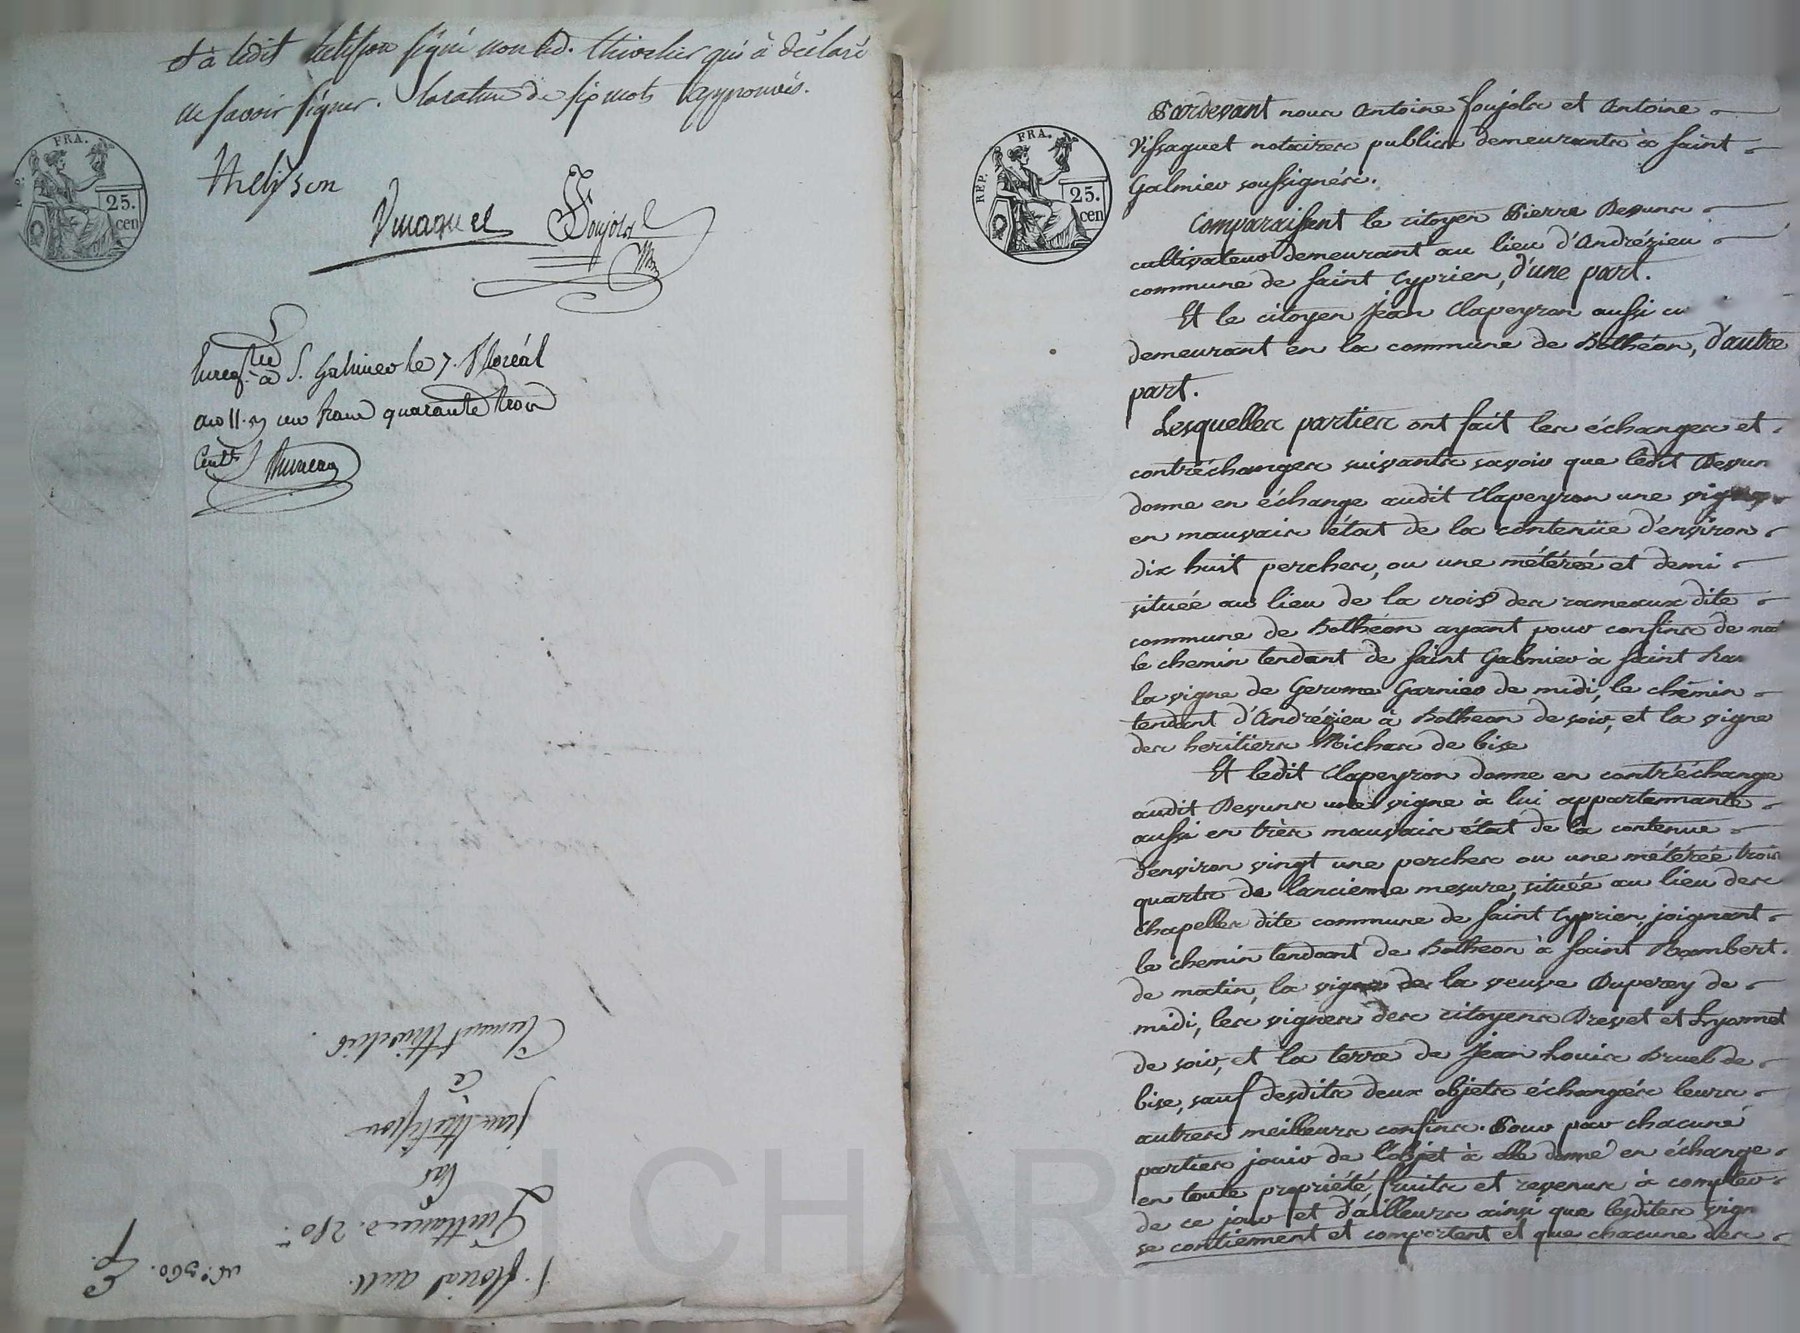 et à ledit Thelisson signé non led. Thivelier qui à déclaré
ne savoir signer. la rature de six mots approuvés.
Thelisson
Vissaguet Soujols
Nre
FRA.
25.
cen
Enregtré à S. Galmier le 7. Floréal
an 11. R/ un franc quarante trois
Cents
N.° 360.
5. floréal an 11.
Quittance d. 280 #
Par
Jean Thelisson
à
Thivelier
REP. FRA.
25.
cen
Pardevant nous Antoine Soujols et Antoine
Vissaguet notaires publics demeurants à saint
Galmier soussignés.
Comparaissent le citoyen Pierre Devuns
cultivateur demeurant au lieu d'Andrézieu
commune de saint Cyprien, d'une part.
Et le citoyen Jean Clapeyron aussi
demeurant en la commune de Bothéon, d'autre
part.
Lesquelles parties ont fait les échanges et
contréchanges suivants savoir que ledit Devun
donne en échange audit Clapeyron une vigne
en mauvais état de la contenüe d'environ
dix huit perches, ou une métérée et demi
située au lieu de la croix des rameaux dite
commune de Bothéon ayant pour confins de
le chemin tendant de saint Galmier à saint
la vigne de Gerome Garnier de midi, le chemin
tendant d'Andrézieu à Botheon de soir, et la vigne
des heritiers Michas de bise
Et ledit Clapeyron donne en contréchange
audit Devuns une vigne à lui appartennante
aussi en très mauvais état de la contenue
d'environ vingt une perches ou une métérée trois
quarts de l'ancienne mesure, située au lieu des
chapelles dite commune de saint Cyprien, joignant
le chemin tendant de Botheon à saint Rambert
de matin, la vigne de la veuve Duperey de
midi, les vignes des citoyens Drevet et Lyonnet
de soir, et la terre de Jean Louis Bruel de
bise, sauf desdits deux objets échangés leurs
autres meilleurs confins. Pour par chacune
parties jouir de l'objet à elle donné en échange
en toute propriété fruits et revenus à compter
de ce jour et d'ailleurs ainsi que lesdites vign
se contiennent et comportent et que chacune des
CHAR